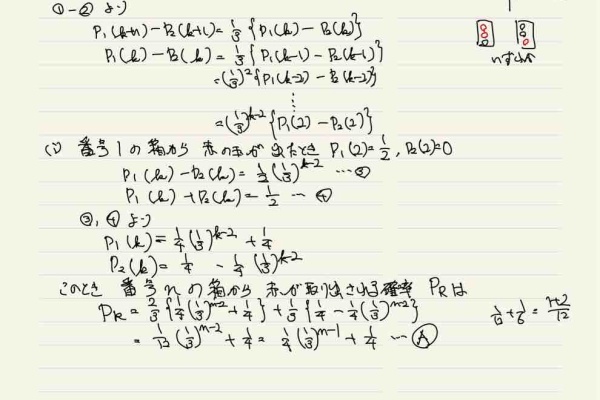 ①−② より
P₁(k+1)−P₂(k+1)=1/3{P₁(k)−P₂(k)}
P₁(k)−P₂(k)=1/3{P₁(k−1)−P₂(k−1)}
=(1/3)²{P₁(k−2)−P₂(k−2)}
⋮
=(1/3)^{k−2}{P₁(2)−P₂(2)}
いずれか
(i) 番号1の箱から 赤の玉が出たとき P₁(2)=1/2, P₂(2)=0
P₁(k)−P₂(k)=1/2(1/3)^{k−2} … ③
P₁(k)+P₂(k)=1/2 … ④
③, ④ より
P₁(k)=1/4(1/3)^{k−2}+1/4
P₂(k)=1/4−1/4(1/3)^{k−2}
このとき 番号nの箱から 赤が取り出される確率 P_R は
P_R=2/3{1/4(1/3)^{n−2}+1/4}+1/3{1/4−1/4(1/3)^{n−2}}
=1/12(1/3)^{n−2}+1/4=1/4(1/3)^{n−1}+1/4 … Ⓐ